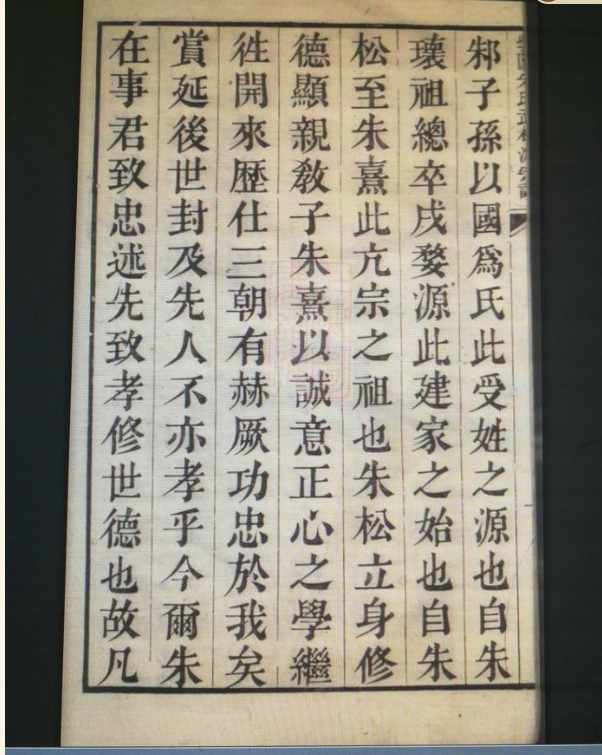 邾子孫以國爲氏此受姓之源也自朱
瓌祖總卒戍婺源此建家之始也自朱
松至朱熹此亢宗之祖也朱松立身修
德顯親教子朱熹以誠意正心之學繼
徃開來歷仕三朝有赫厥功忠於我矣
賞延後世封及先人不亦孝乎今爾朱
在事君致忠述先致孝修世德也故凡